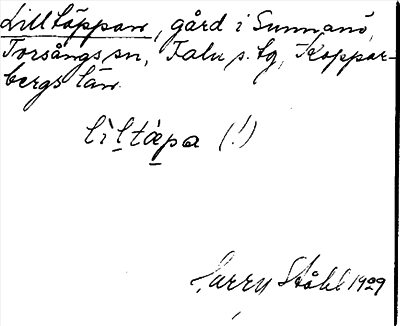 Lilltäppan, gård i Sunnanö,
Torsångs sn, Falu s. tg, Koppar-
bergs län.
lìltàpa (!)
Harry Ståhl 1929